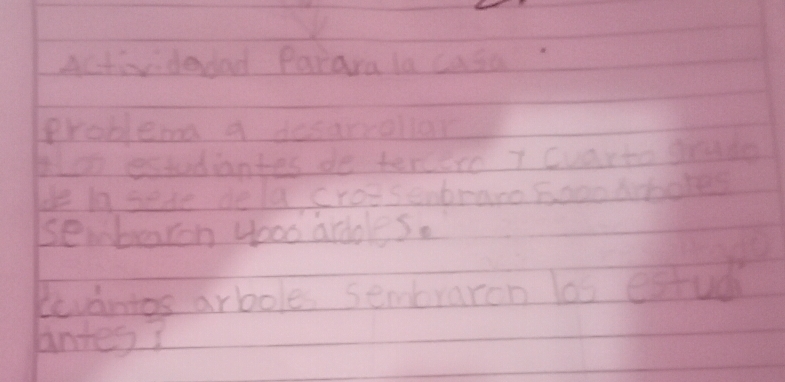 Actividedad Parara la casa.
problema a desarrollar
estudiantes de tercero y cuarto grado
de la sede de la croz senbraro 5000 Arboles
sembraron 4000 arboles.
cuántos arboles sembraron los estudi
antes?